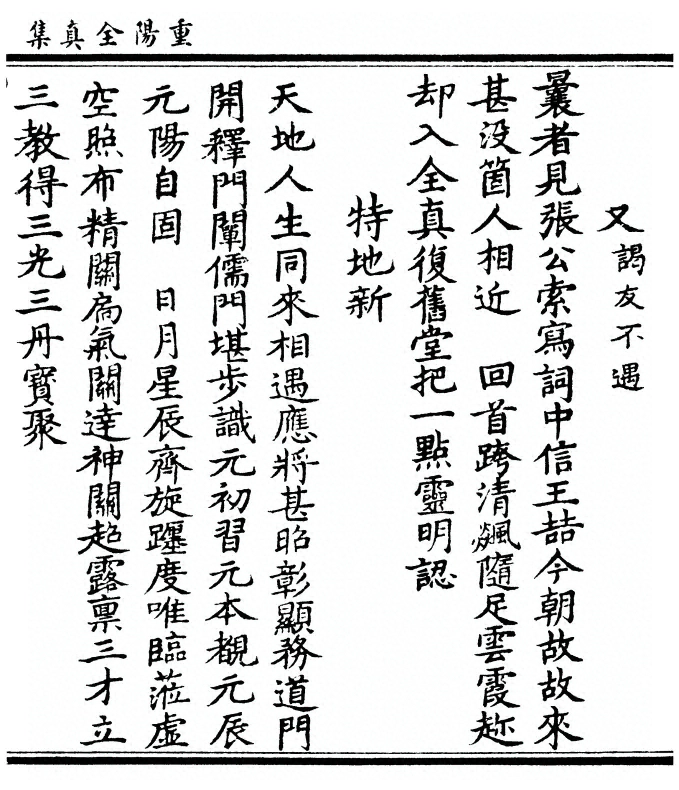 重陽全真集
又謁友不遇
曩者見張公索寫詞中信王喆今朝故故來
甚没箇人相近　回首跨清飈隨足雲霞趂
却入全真復舊堂把一點靈明認
特地新
天地人生同來相遇應將甚昭彰顯務道門
開釋門闡儒門堪步識元初習元本覩元辰
元陽自固　日月星辰齊旋躔度唯臨蒞虛
空照布精關扃氣關達神關超露禀三才立
三教得三光三丹寳聚